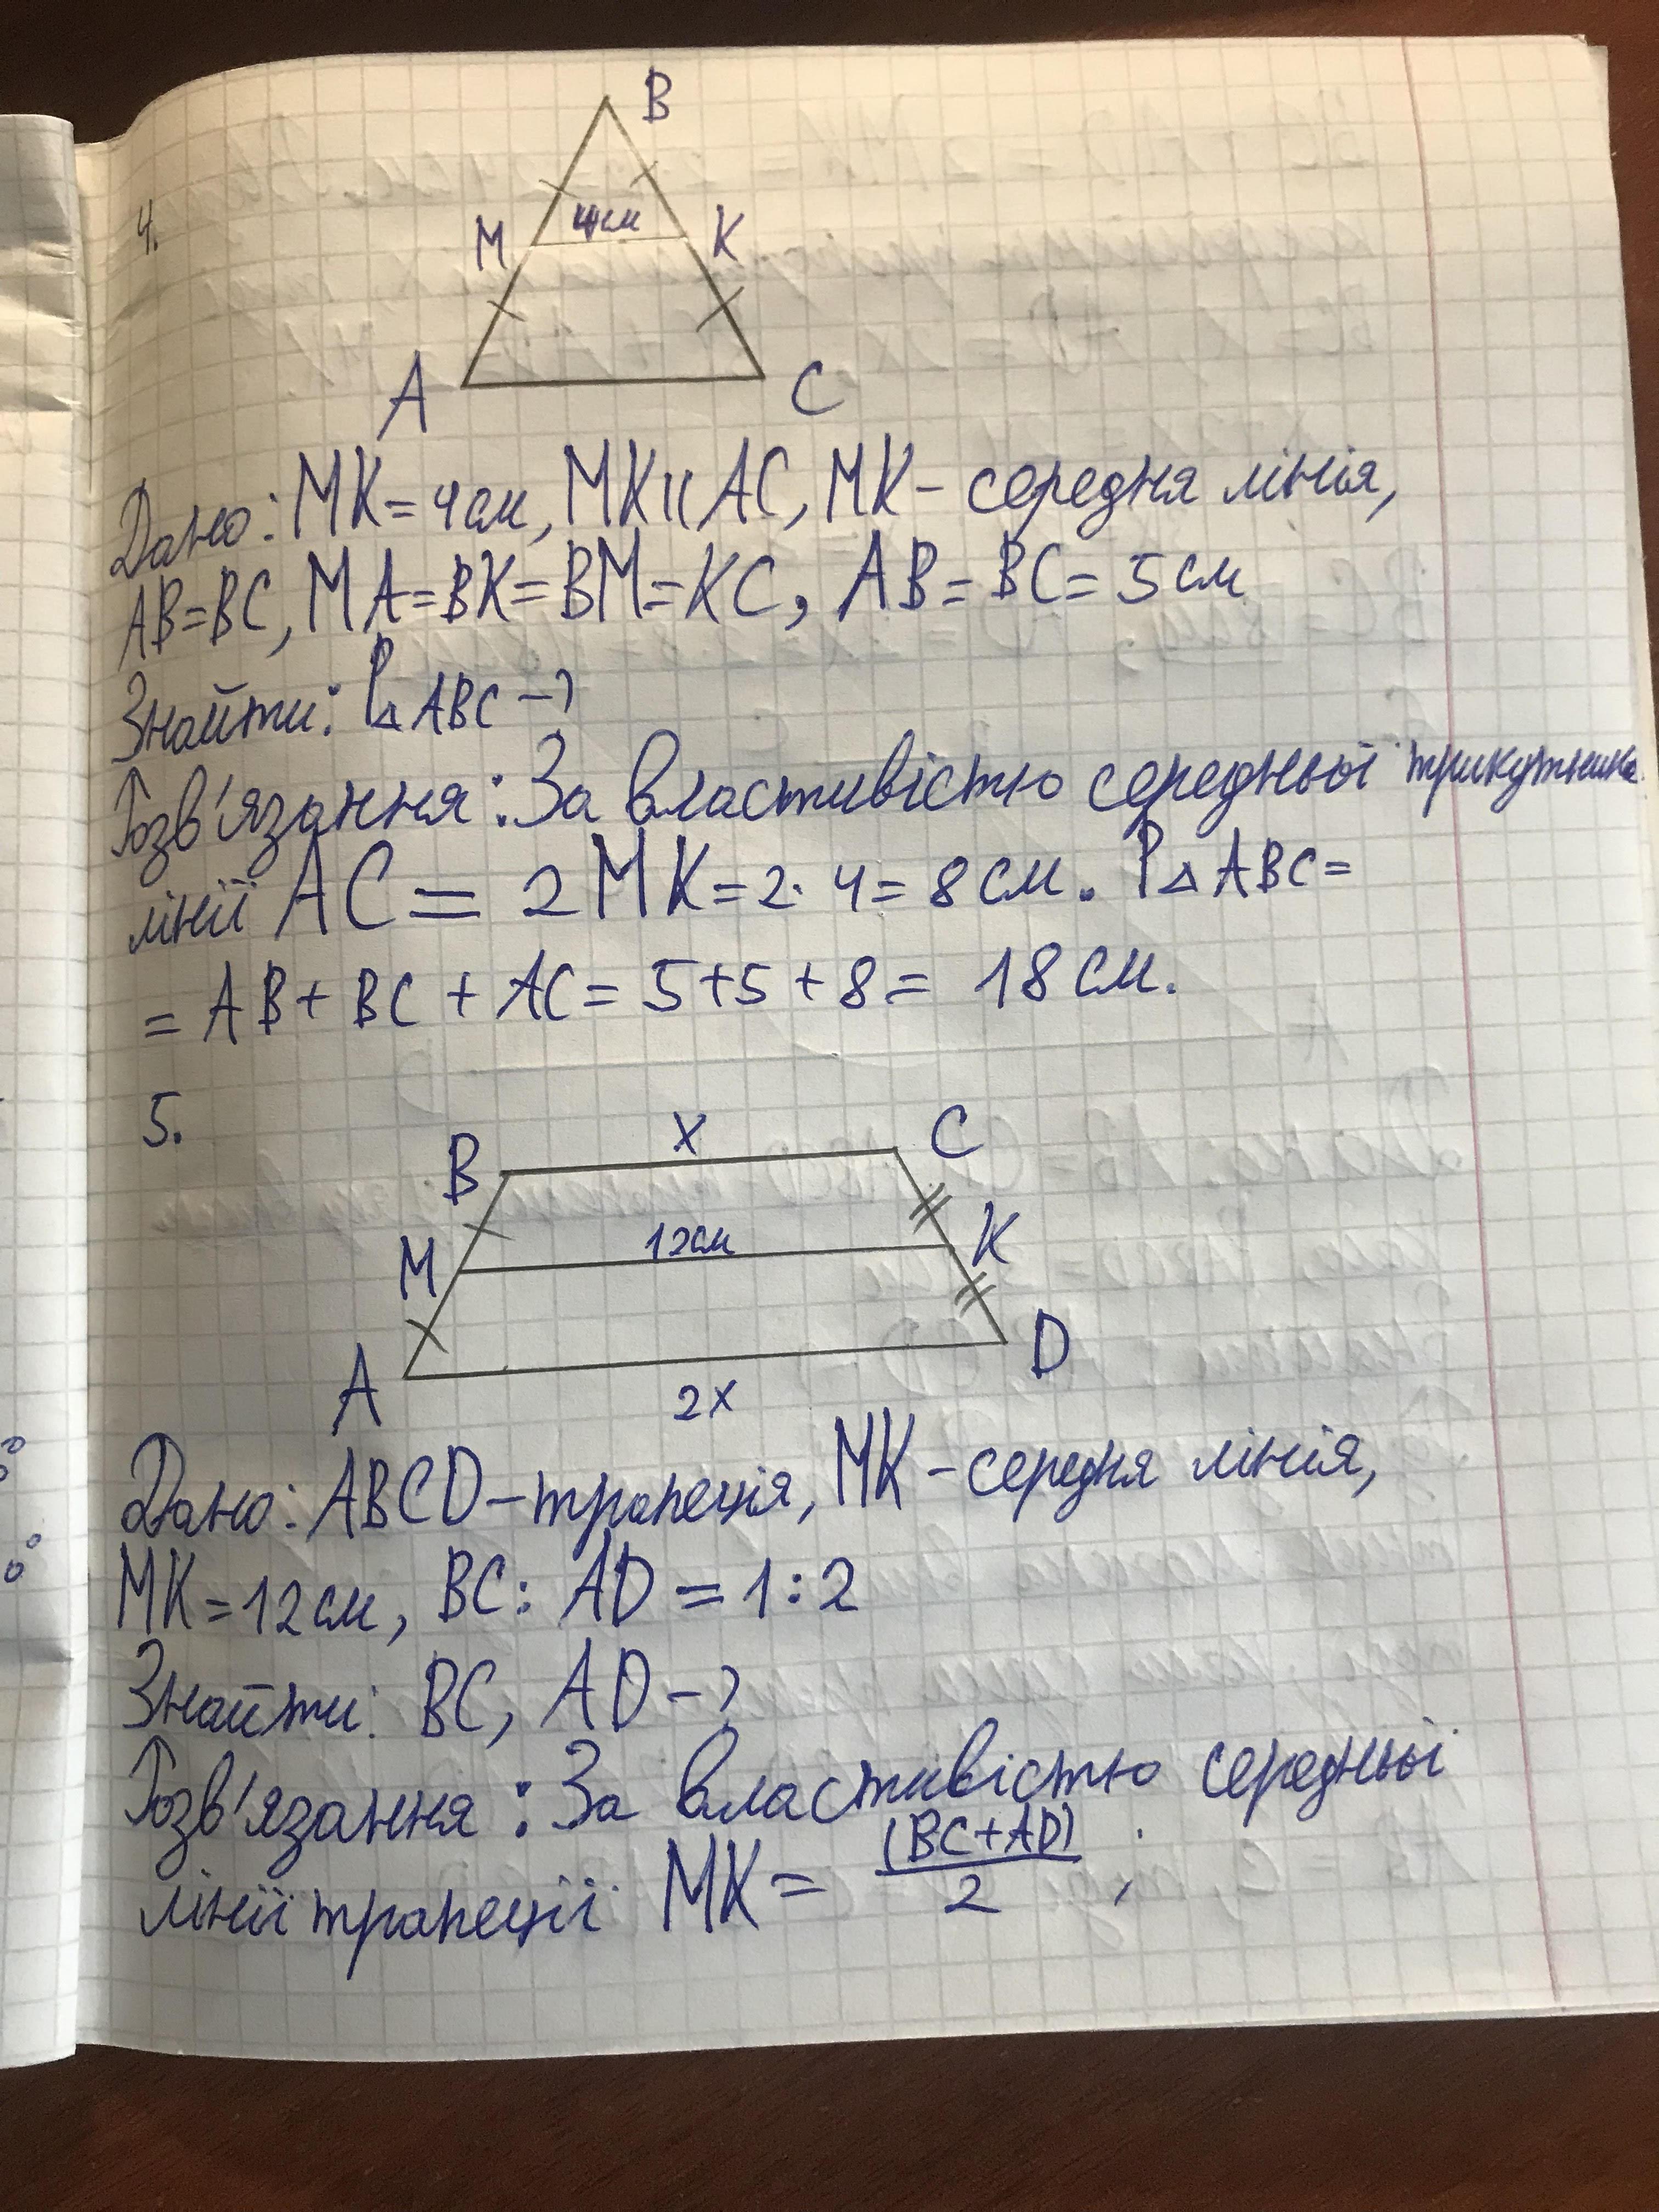 4.
B
4см
M
K
A
C
Дано: MK = 4 см, MK || AC, MK – середня лінія,
AB = BC, MA = BK = BM = KC, AB = BC = 5 см
Знайти: P△ABC – ?
Розв'язання: За властивістю середньої трикутника
лінії AC = 2MK = 2·4 = 8 см. P△ABC =
= AB + BC + AC = 5 + 5 + 8 = 18 см.
5.
B
x
C
M
12см
K
A
2x
D
Дано: ABCD – трапеція, MK – середня лінія,
MK = 12 см, BC : AD = 1 : 2
Знайти: BC, AD – ?
Розв'язання: За властивістю середньої
лінії трапеції MK = (BC+AD)/2 ;